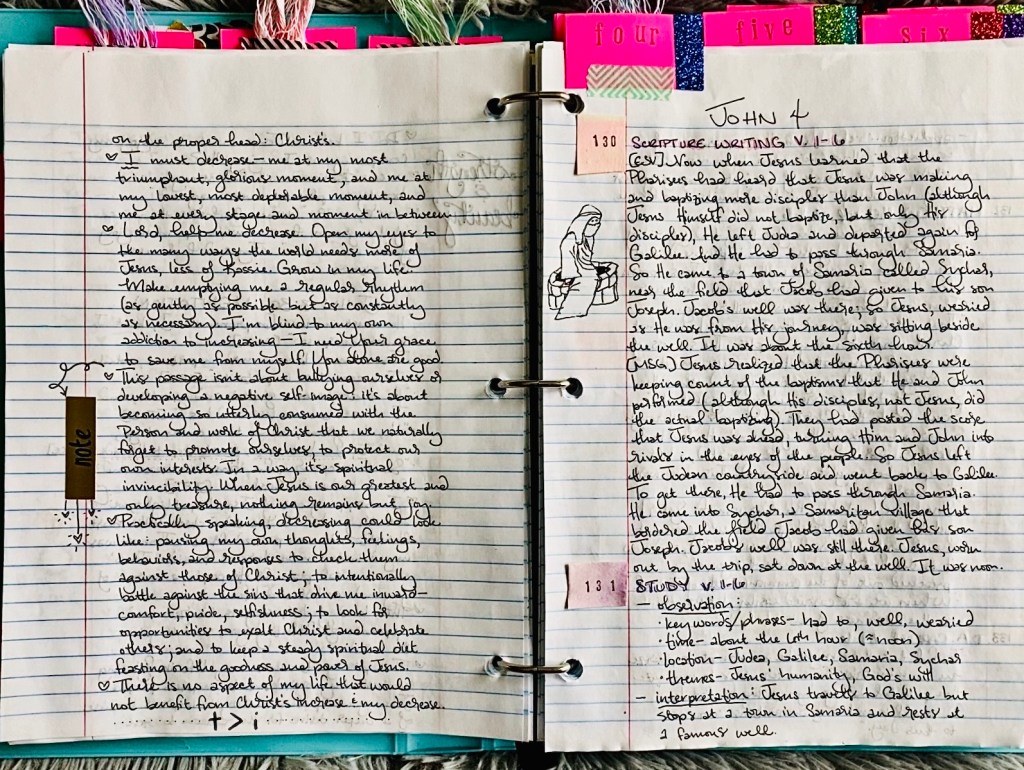 four
five
six
on the proper head: Christ's.
♡ I must decrease—me at my most
triumphant, glorious moment, and me at
my lowest, most deplorable moment, and
me at every stage and moment in between.
♡ Lord, help me decrease. Open my eyes to
the many ways the world needs more of
Jesus, less of Kassie. Grow in my life.
Make emptying me a regular rhythm
(as gently as possible but as constantly
as necessary). I'm blind to my own
addiction to increasing—I need Your grace
to save me from myself. You alone are good.
♡ This passage isn't about bullying ourselves or
developing a negative self-image: it's about
becoming so utterly consumed with the
Person and work of Christ that we naturally
forget to promote ourselves, to protect our
own interests. In a way, it's spiritual
invincibility. When Jesus is our greatest and
only treasure, nothing remains but joy.
♡ Practically speaking, decreasing could look
like: pausing my own thoughts, feelings,
behaviors, and responses to check them
against those of Christ; to intentionally
battle against the sins that drive me inward—
comfort, pride, selfishness; to look for
opportunities to exalt Christ and celebrate
others; and to keep a steady spiritual diet
feasting on the goodness and power of Jesus.
♡ There is no aspect of my life that would
not benefit from Christ's increase & my decrease.
† > i
note
JOHN 4
130
SCRIPTURE WRITING V. 1-6
[ESV] Now when Jesus learned that the
Pharisees had heard that Jesus was making
and baptizing more disciples than John (although
Jesus Himself did not baptize, but only His
disciples), He left Judea and departed again for
Galilee. And He had to pass through Samaria.
So He came to a town of Samaria called Sychar,
near the field that Jacob had given to his son
Joseph. Jacob's well was there; so Jesus, wearied
as He was from His journey, was sitting beside
the well. It was about the sixth hour.
[MSG] Jesus realized that the Pharisees were
keeping count of the baptisms that He and John
performed (although His disciples, not Jesus, did
the actual baptizing). They had posted the score
that Jesus was ahead, turning Him and John into
rivals in the eyes of the people. So Jesus left
the Judean countryside and went back to Galilee.
To get there, He had to pass through Samaria.
He came into Sychar, a Samaritan village that
bordered the field Jacob had given his son
Joseph. Jacob's well was still there. Jesus, worn
out by the trip, sat down at the well. It was noon.
131
STUDY V. 1-6
— observation:
· key words/phrases— had to, well, wearied
· time— about the 6th hour (≈ noon)
· location— Judea, Galilee, Samaria, Sychar
· themes— Jesus' humanity, God's will
— interpretation: Jesus travels to Galilee but
stops at a town in Samaria and rests at
a famous well.